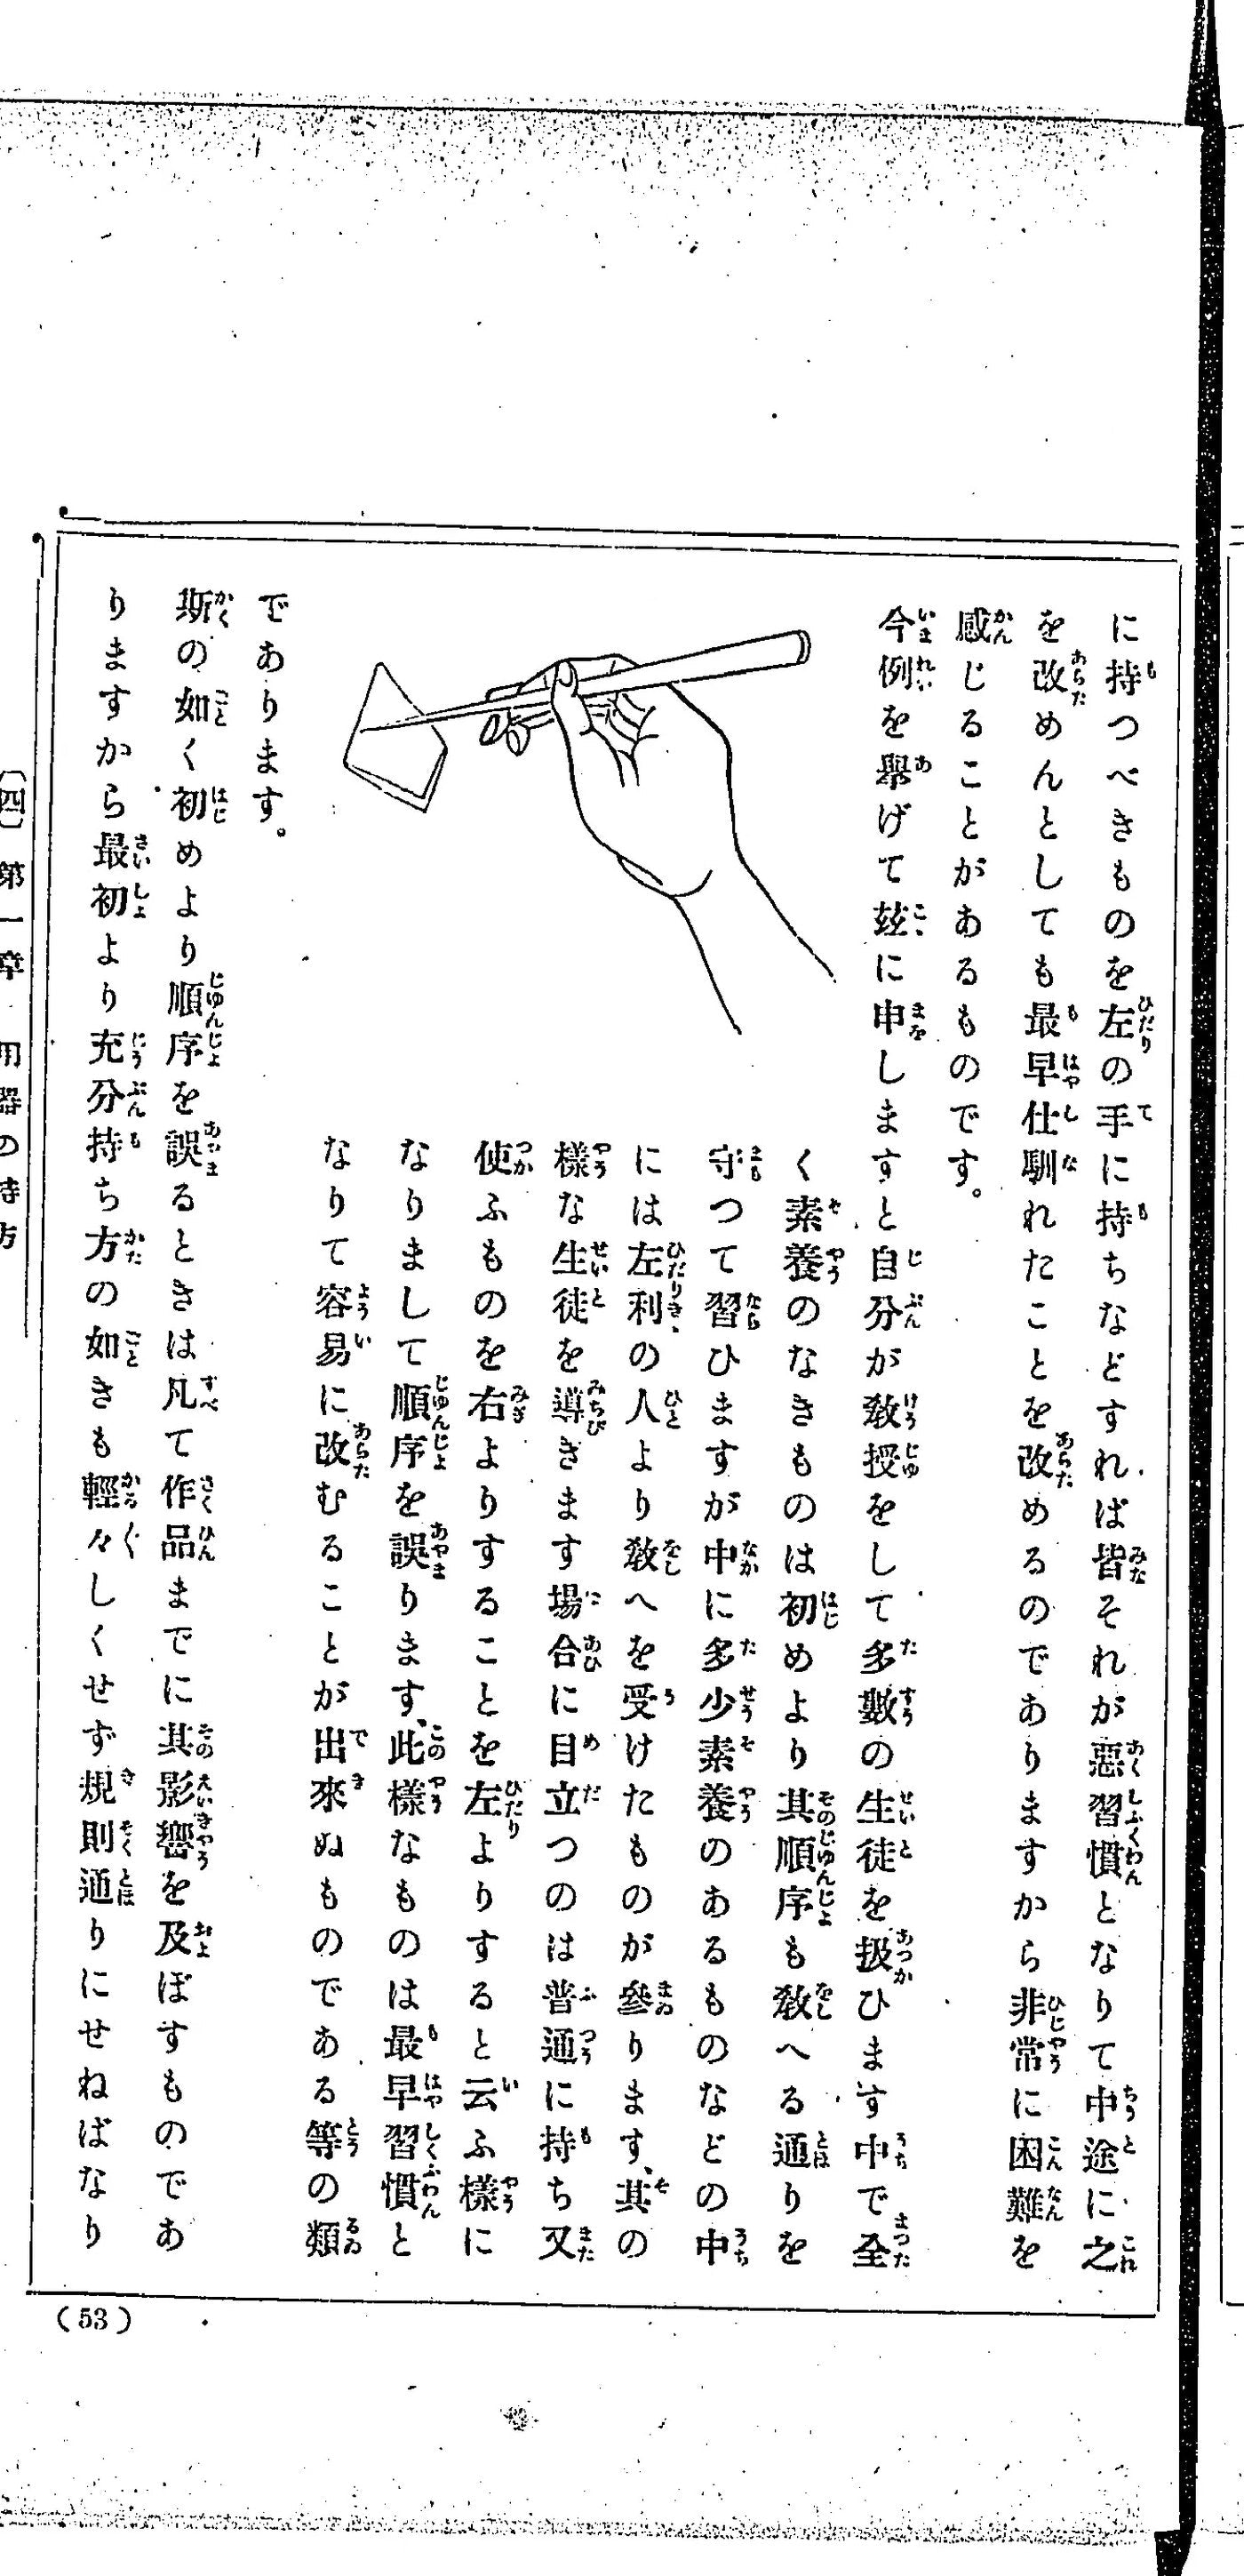 に持つべきものを左の手に持ちなどすれば皆それが惡習慣となりて中途に之
を改めんとしても最早仕馴れたことを改めるのでありますから非常に困難を
感じることがあるものです。
今例を擧げて玆に申しますと自分が敎授をして多數の生徒を扱ひます中で全
く素養のなきものは初めより其順序も敎へる通りを
守つて習ひますが中に多少素養のあるものなどの中
には左利の人より敎へを受けたものが參ります、其の
樣な生徒を導きます場合に目立つのは普通に持ち又
使ふものを右よりすることを左よりすると云ふ樣に
なりまして順序を誤ります、此樣なものは最早習慣と
なりて容易に改むることが出來ぬものである等の類
であります。
斯の如く初めより順序を誤るときは凡て作品までに其影響を及ぼすものであ
りますから最初より充分持ち方の如きも輕々しくせず規則通りにせねばなり
〔四〕第一章 用器の持方
(53)